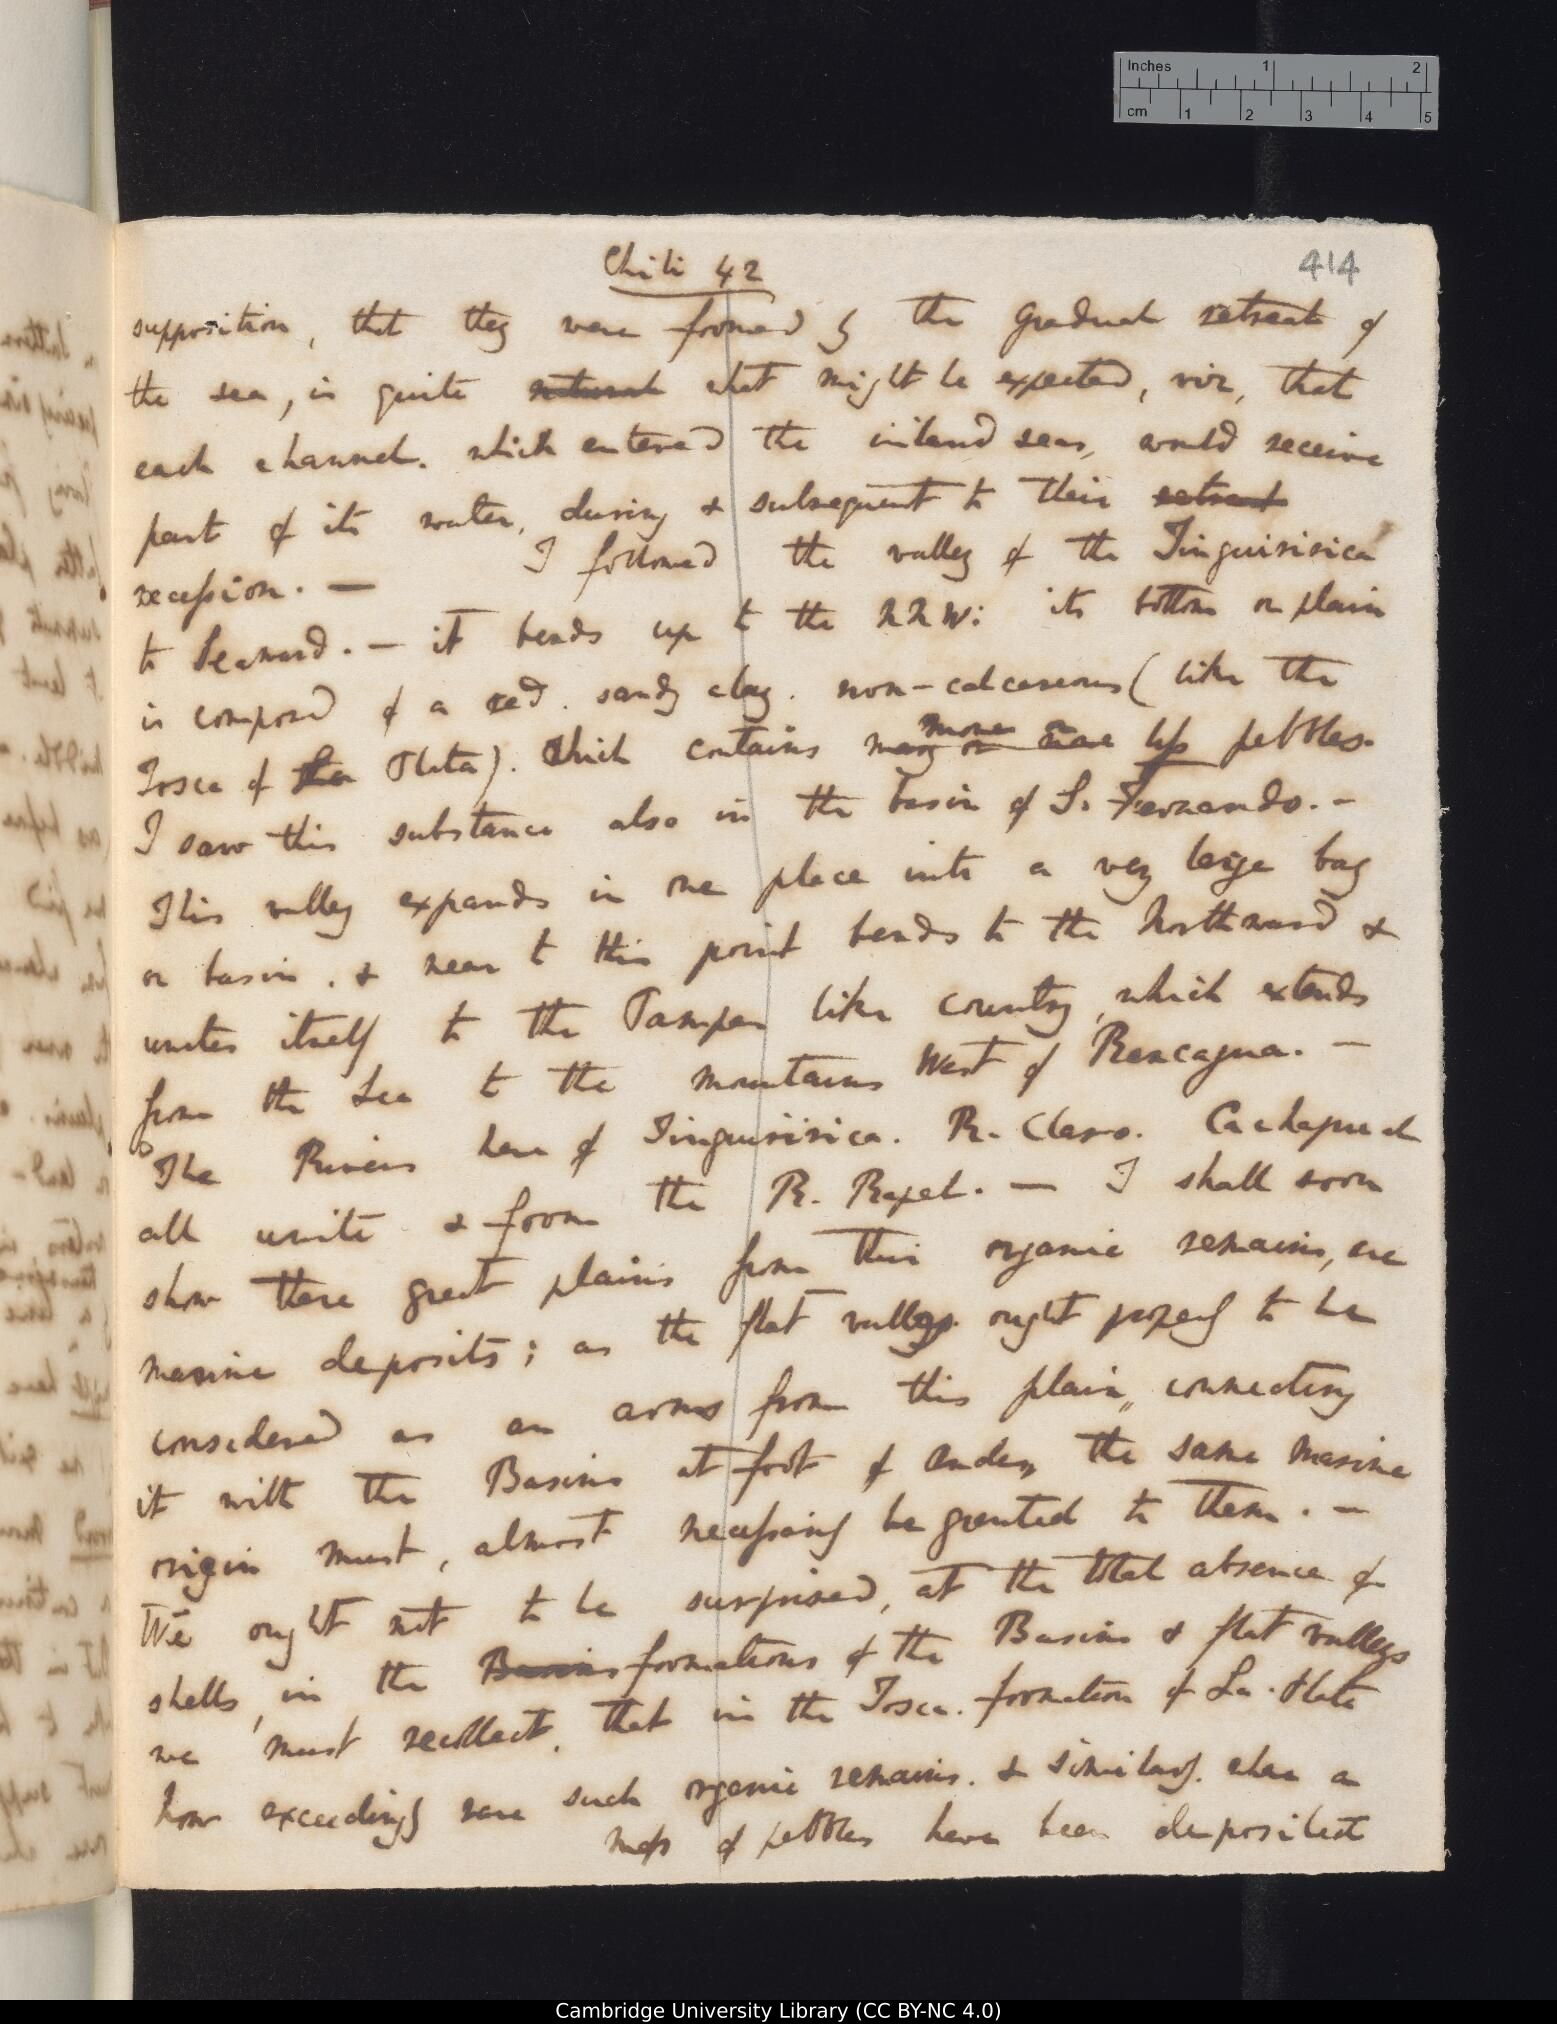 Inches 1 2
cm 1 2 3 4 5
414
Chili 42
supposition, that they were formed by the gradual retreat of
the sea, is quite natural what might be expected, viz, that
each channel. which entered the inland seas, would receive
part of its water, during & subsequent to their retreat
recession. — I followed the valley of the Tinguiririca
to Seaward. — it bends up to the NNW: its bottom or plain
is composed of a red. sandy clay. non-calcareous (like the
Tosca of La Plata). which contains more or less pebbles.
I saw this substance also in the basin of S. Fernando. —
This valley expands in one place into a very large bay
or basin. & near to this point bends to the Northward &
unites itself to the Pampa like country, which extends
from the Sea to the mountains West of Rancagua. —
The Rivers here of Tinguiririca. R. Claro. Cachapual
all unite & form the R. Rapel. — I shall soon
show these great plains from their organic remains, are
marine deposits; as the flat valleys ought properly to be
considered as an arms from this plain, connecting
it with the Basins at foot of Andes, the same marine
origin must, almost necessarily be granted to them. —
We ought not to be surprised, at the total absence of
shells, in the Basins formations of the Basins & flat valleys
we must recollect, that in the Tosca. formation of La. Plata
how exceedingly rare such organic remains. & similarly. when a
mass of pebbles have been deposited
Cambridge University Library (CC BY-NC 4.0)